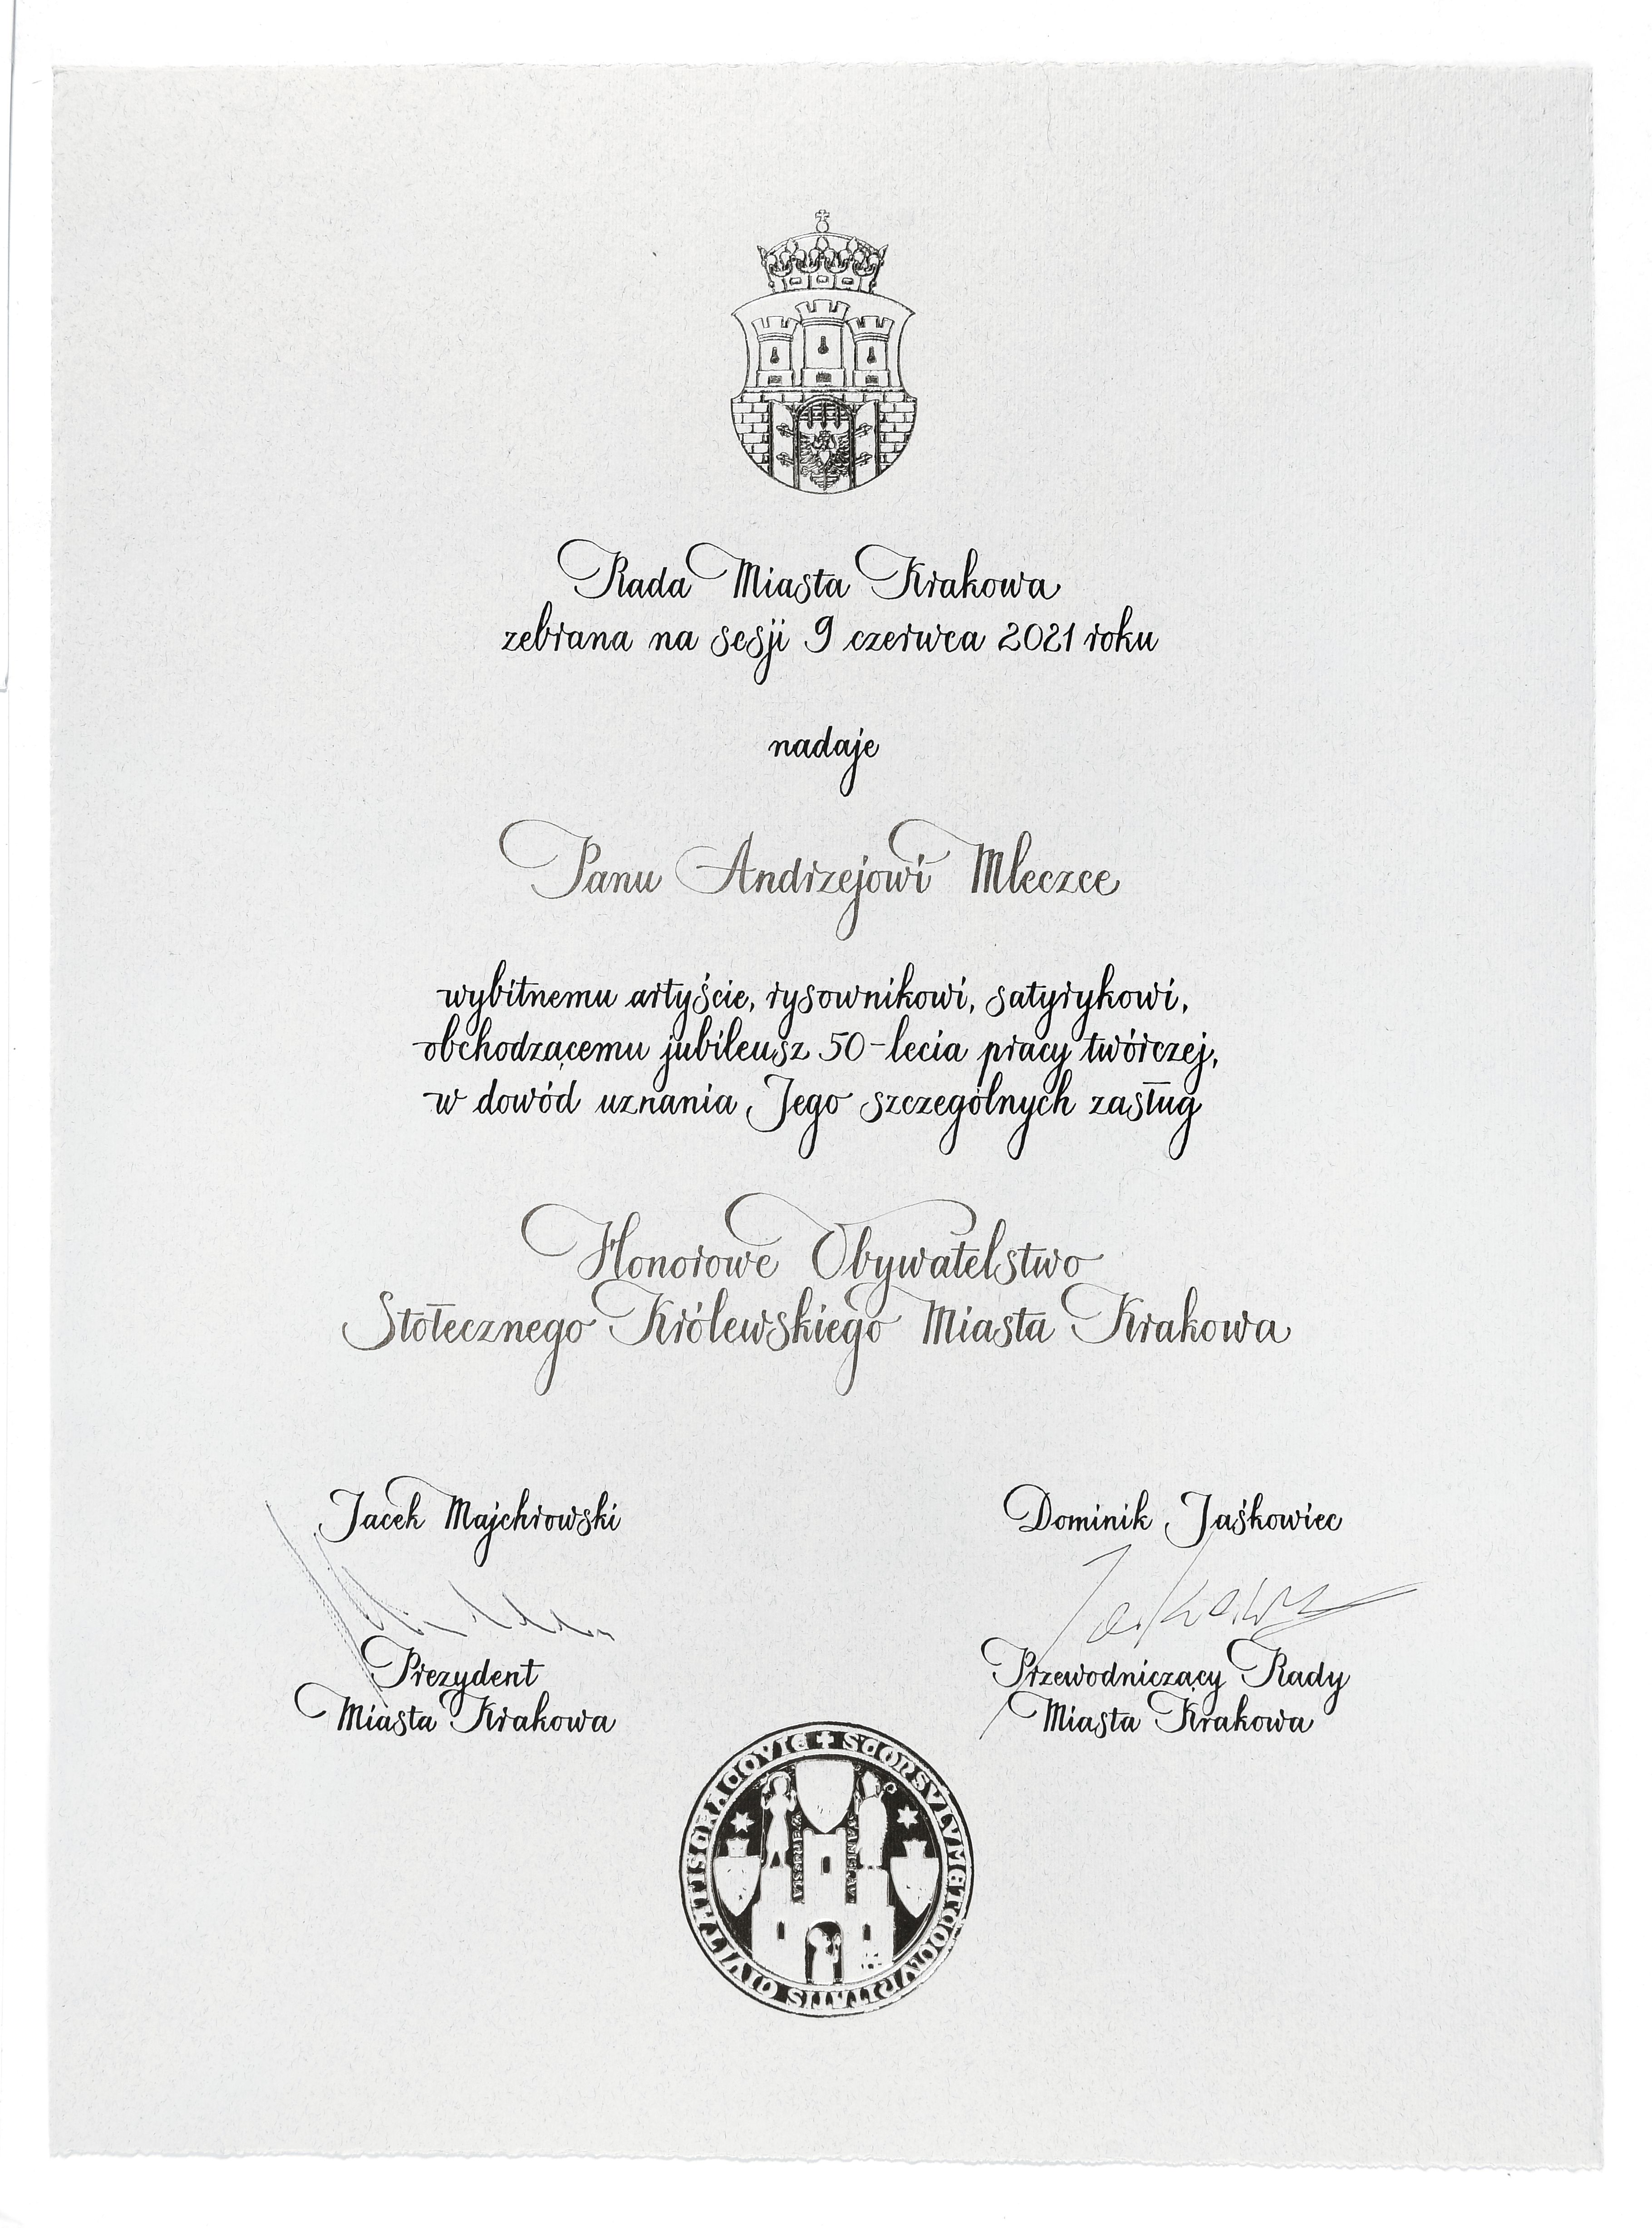 Rada Miasta Krakowa
zebrana na sesji 9 czerwca 2021 roku
nadaje
Panu Andrzejowi Mleczce
wybitnemu artyście, rysownikowi, satyrykowi,
obchodzącemu jubileusz 50-lecia pracy twórczej,
w dowód uznania Jego szczególnych zasług
Honorowe Obywatelstwo
Stołecznego Królewskiego Miasta Krakowa
Jacek Majchrowski
Prezydent
Miasta Krakowa
Dominik Jaśkowiec
Przewodniczący Rady
Miasta Krakowa